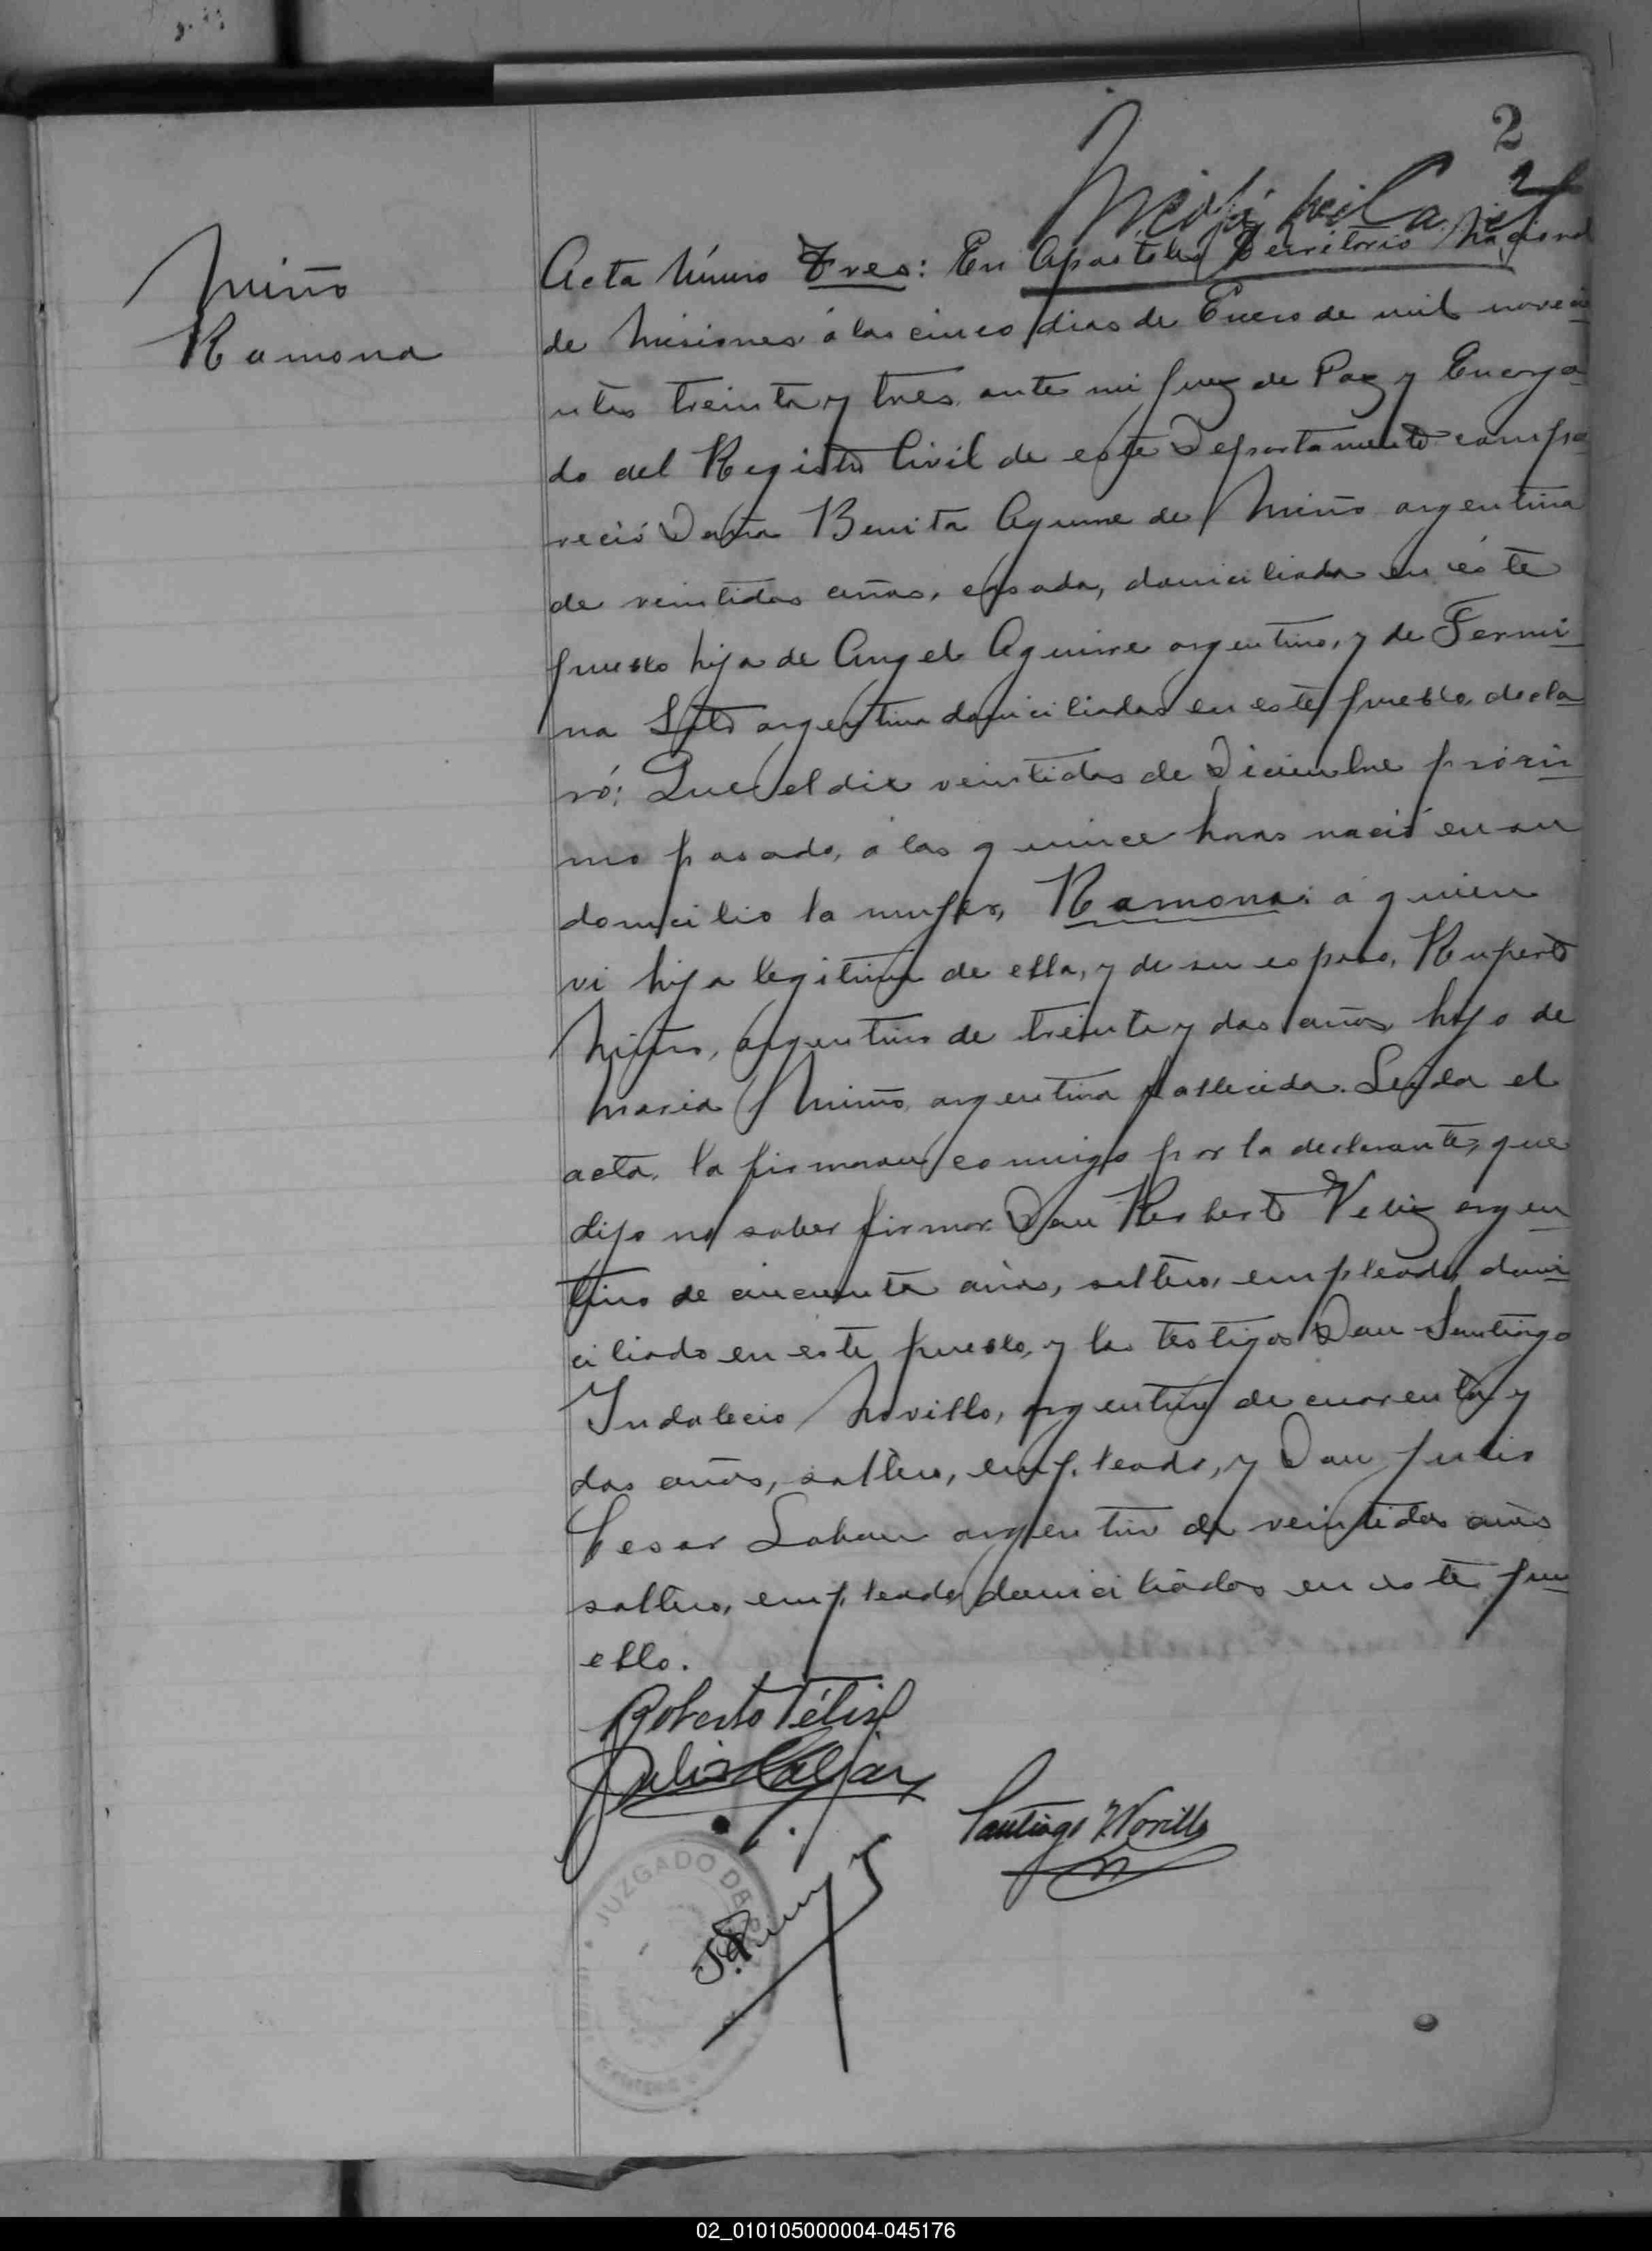 2
Miño
Ramona
Acta Número Tres: En Apóstoles Territorio Nacional
de Misiones á los cinco dias de Enero de mil noveci
entos treinta y tres, ante mi Juez de Paz y Encarga
do del Registro Civil de este Departamento compa
reció Doña Benita Aguirre de Miño argentina
de veintidos años, casada, domiciliada en éste
pueblo hija de Angel Aguirre argentino, y de Fermi
na Soto argentina domiciliados en este pueblo, decla
ró: Que el dia veintidos de Diciembre próxi
mo pasado, á las quince horas nació en su
domicilio la mujer, Ramona: á quien
vi hija legitima de ella, y de su esposo, Ruperto
Miño, argentino de treinta y dos años, hijo de
Maria Miño, argentina fallecida. Leyda el
acta, la firmaron conmigo por la declarante, que
dijo no saber firmar Don Roberto Veliz argen
tino de cincuenta años, soltero, empleado, domi
ciliado en este pueblo, y los testigos Don Santiago
Indalecio Novillo, argentino de cuarenta y
dos años, soltero, empleado, y Don Julio
Cesar argentino de veintidos años
soltero, empleado domiciliados en este pu
eblo.
Roberto Véliz
Julio
Santiago Y. Novillo
JUZGADO DE
02_010105000004-045176